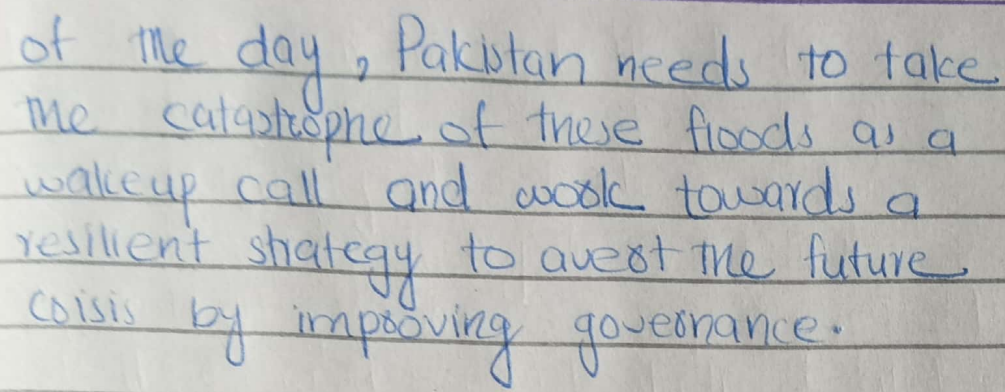 of the day, Pakistan needs to take
the catastrophe of these floods as a
wakeup call and work towards a
resilient strategy to avert the future
crisis by improving governance.